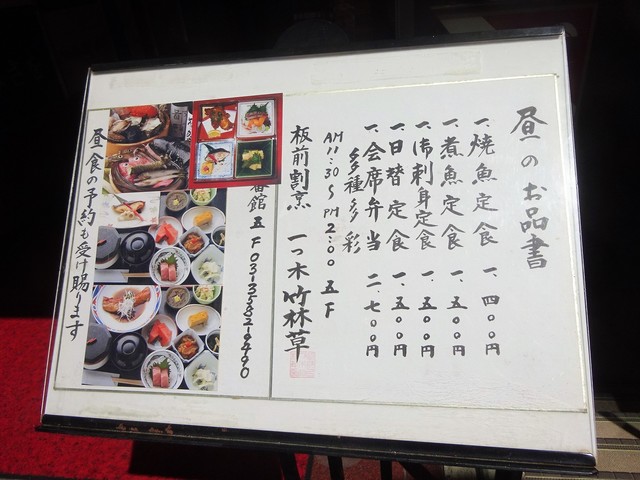 昼のお品書
一、焼魚定食 一、四〇〇円
一、煮魚定食 一、五〇〇円
一、御刺身定食 一、五〇〇円
一、日替定食 一、五〇〇円
一、会席弁当 二、七〇〇円
多種多彩
AM 11:30～PM 2:00 五F
板前割烹 一つ木 竹林草
番館 五F 03-3582-9490
昼食の予約も受け賜ります